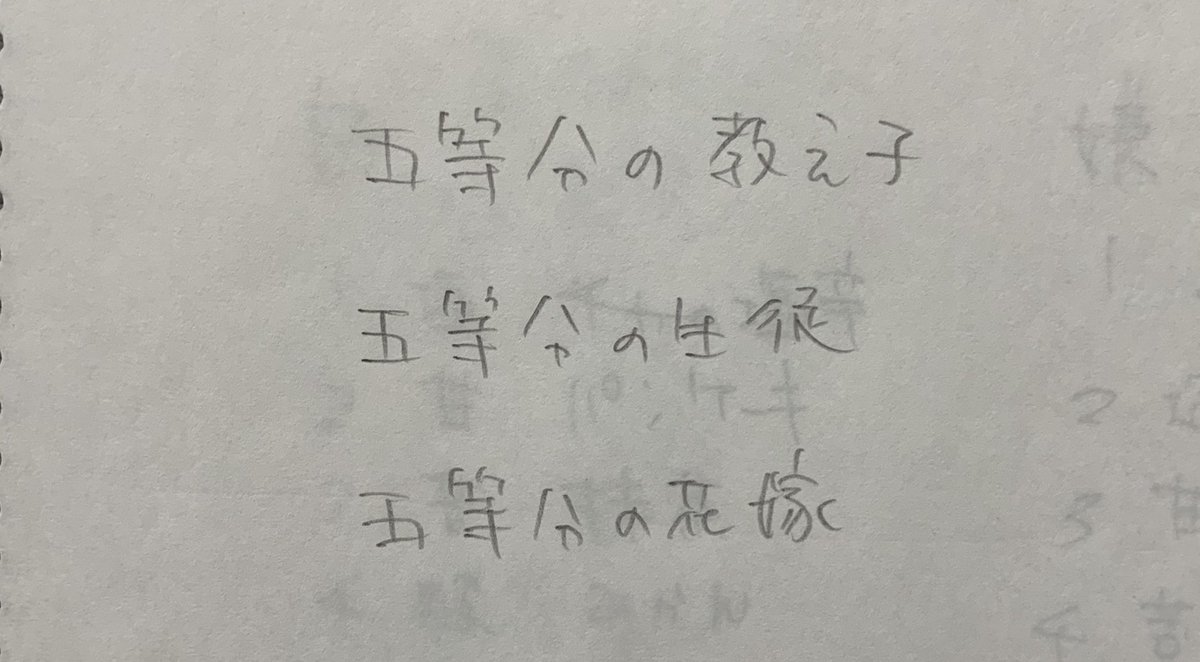 五等分の教え子
五等分の生徒
五等分の花嫁